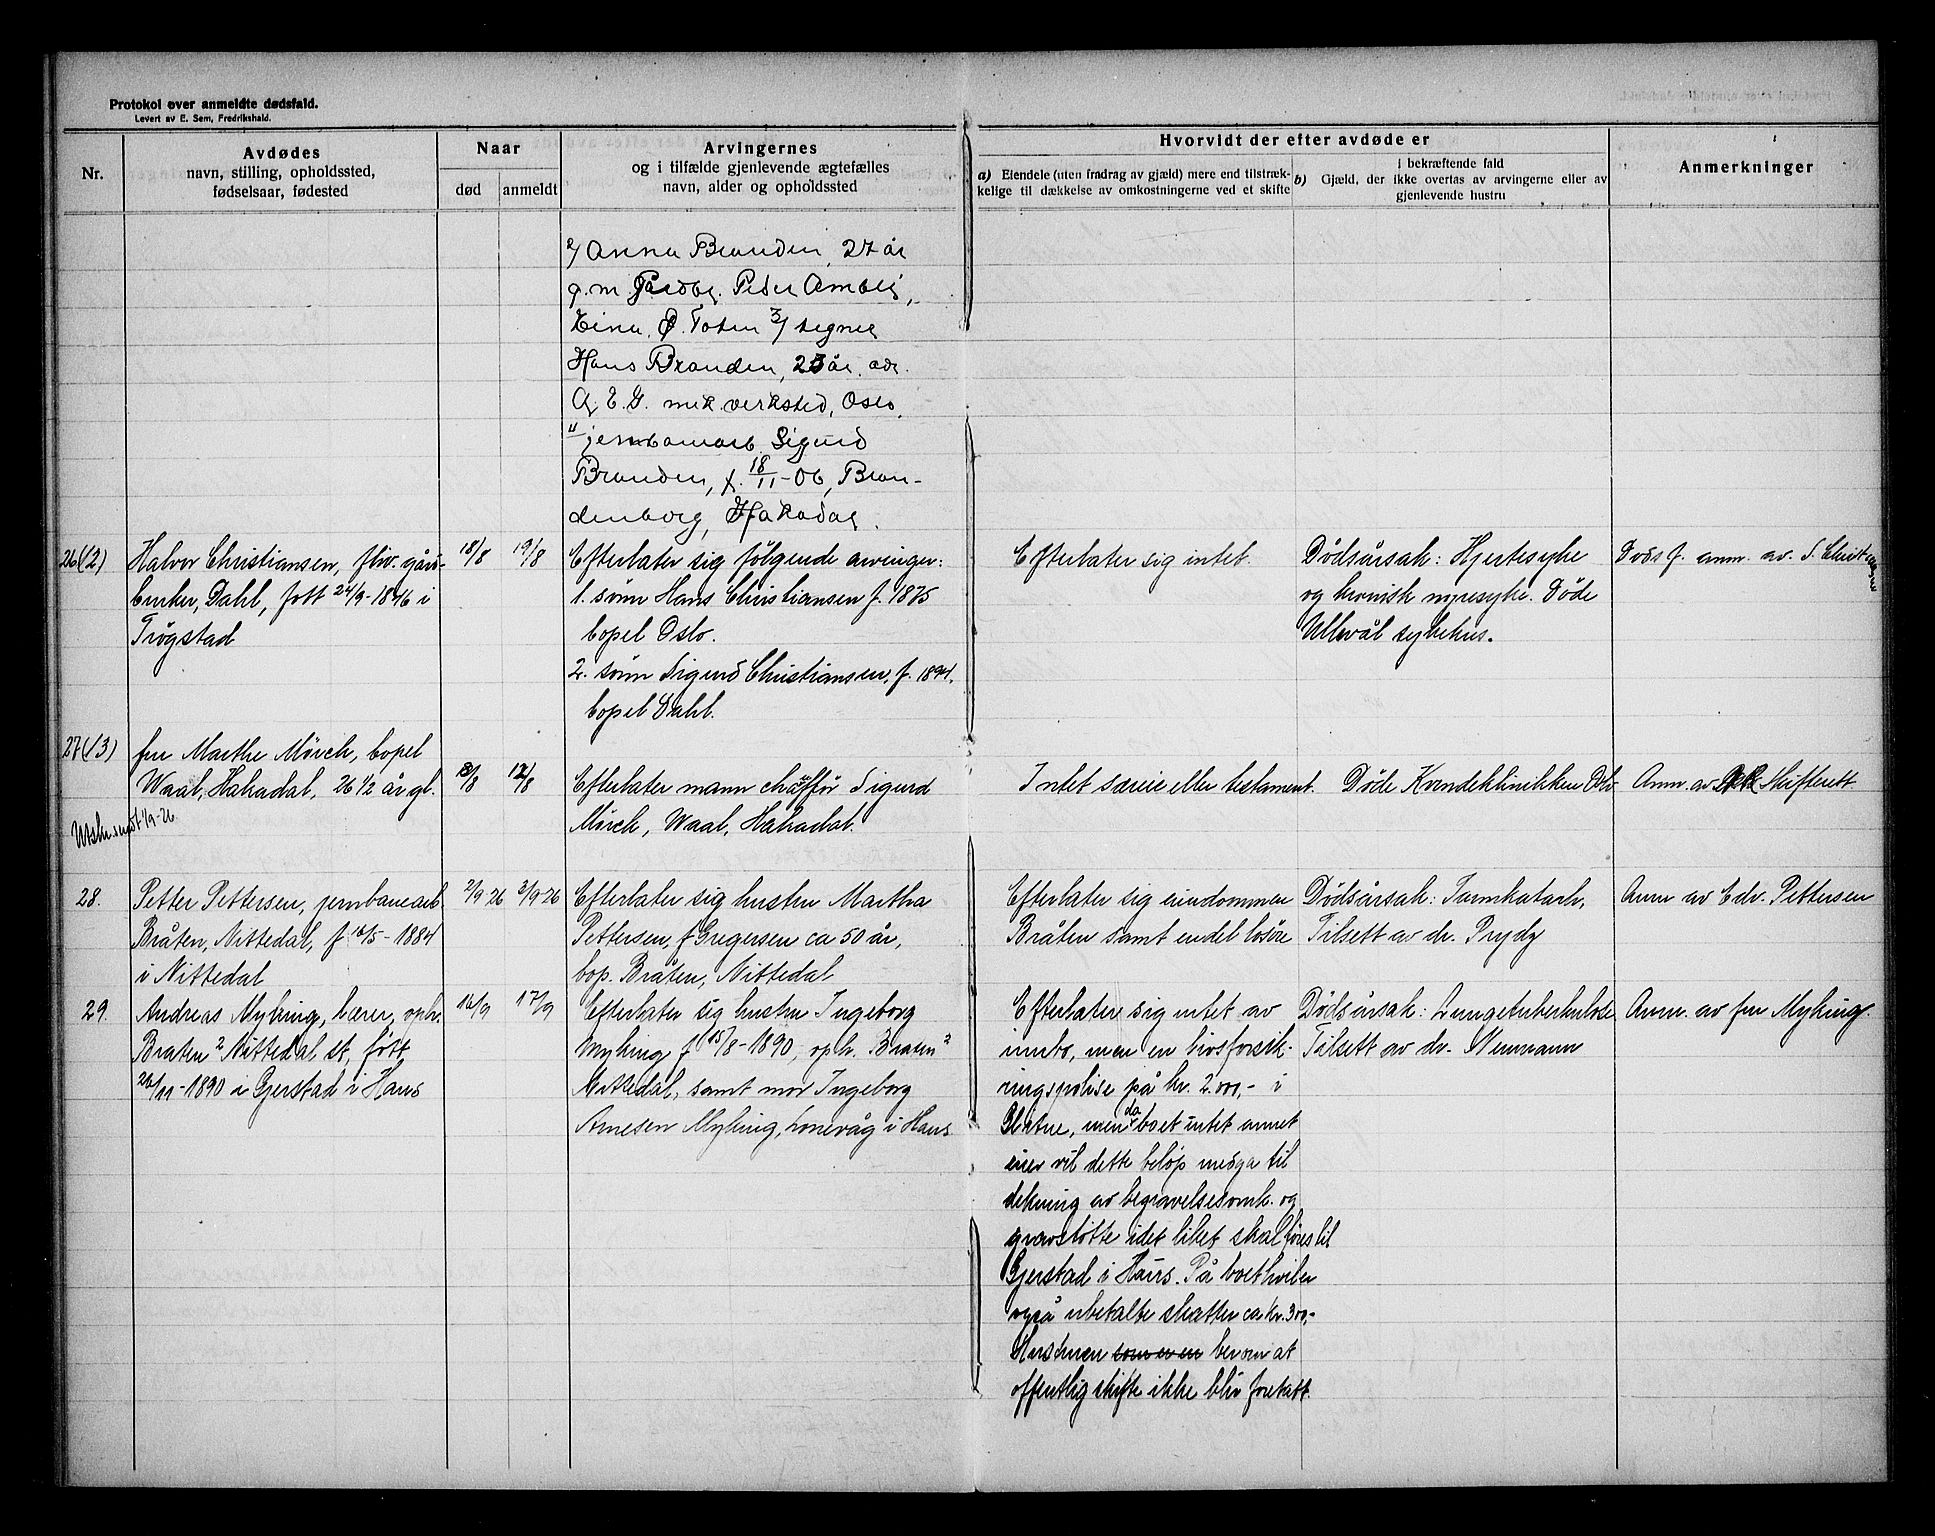 Protokol over anmeldte dødsfald.
Levert av E. Sem, Fredrikshald.
Nr.
Avdødes
navn, stilling, opholdssted,
fødselsaar, fødested
Naar
død
anmeldt
Arvingernes
og i tilfælde gjenlevende ægtefælles
navn, alder og opholdssted
Hvorvidt der efter avdøde er
a) Eiendele (uten fradrag av gjæld) mere end tilstræk-
kelige til dækkelse av omkostningerne ved et skifte
i bekræftende fald
b) Gjæld, der ikke overtas av arvingerne eller av
gjenlevende hustru
Anmerkninger
2/ Anna Branden, 27 år
g.m. Peder
Eina, Ø. Toten 3/
Hans Branden, 23 år, adr.
A. E. G. mek. verksted, Oslo,
jernbanearb Sigurd
Branden, f. 18/11-06, Bran-
denborg, Hakadal.
26 (12)
Halvor Christiansen, fhv. gård-
bruker, Dahl, født 24/9-1846 i
Trøgstad
18/8
19/8
Efterlater sig følgende arvinger:
1. sønn Hans Christiansen f. 1875
bopel Oslo.
2. sønn Sigurd Christiansen, f.
bopel Dahl.
Efterlater sig intet.
Dødsårsak: Hjertesyke
og kronisk nyresyke. Døde
Ullevål sykehus.
Dødsf. anm. av S. Christiansen
27 (13)
fru Marthe Mørch, bopel
Waal, Hakadal, 26 1/2 år gl.
8/8
12/8
Efterlater mann chaffør Sigurd
Mørch, Waal, Hakadal.
Intet særeie eller testament.
Døde Kvindeklinikken Oslo
Anm. av Skifterett
Utskr. sendt 1/9-26
28.
Petter Pettersen, jernbanearb.
Bråten, Nittedal, f. 10/5-1884
i Nittedal
2/9 26
3/9-26
Efterlater sig hustru Martha
Pettersen, f Gregersen ca 50 år,
bop. Bråten, Nittedal
Efterlater sig eiendommen
Bråten samt endel løsøre
Dødsårsak: Tarmkatarh,
Tilsett av dr. Prydz
Anm av Edv. Pettersen
29.
Andreas Myking, lærer, oph.
Braten 2 Nittedal st, født
26/11-1890 i Gjerstad i Haus
16/9
17/9
Efterlater sig hustru Ingeborg
Myking f 15/8-1890, oph. Braten 2
Nittedal, samt mor Ingeborg
Arnesen Myking, Lonevåg i Haus
Efterlater sig intet av
innbo, men en livsforsik-
ringspolise på kr. 2.000,- i
men da boet intet annet
eier vil dette beløp medga til
dekning av begravelsesomk. og
gravstøtte idet liket skal føres til
Gjerstad i Haus. På boet hviler
også ubetalte skatter ca kr. 300,-
Hustruen som er en ber om at
offentlig skifte ikke blir foretatt.
Dødsårsak: Lungetuberkulose
Tilsett av dr. Neumann
Anm. av fru Myking.